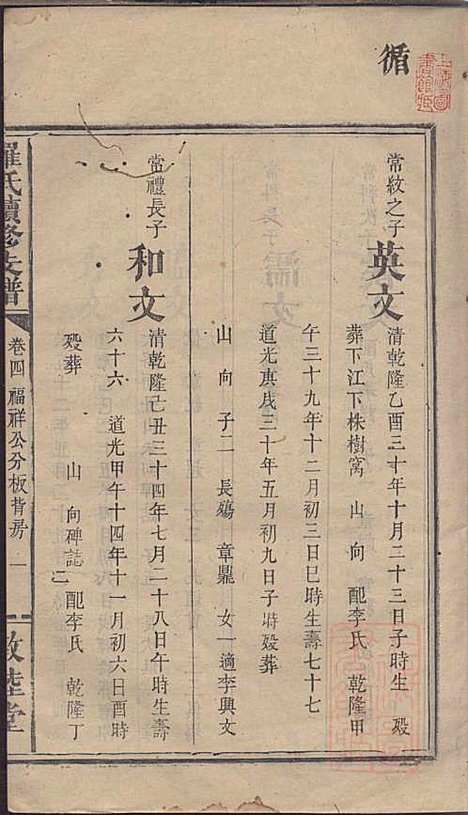 循
常紋之子 英文 清乾隆乙酉三十年十月二十三日子時生 殁
葬下江下株樹窩 山 向 配李氏 乾隆甲
午三十九年十二月初三日巳時生壽七十七
道光庚戌三十年五月初九日子時殁葬
山 向 子二 長殤 章鼎 女一適李興文
常禮長子 和文 清乾隆己丑三十四年七月二十八日午時生壽
六十六 道光甲午十四年十一月初六日酉時
殁葬 山 向碑誌 配李氏 乾隆丁
羅氏續修支譜 卷四 福祥公分板背房 一 敦睦堂